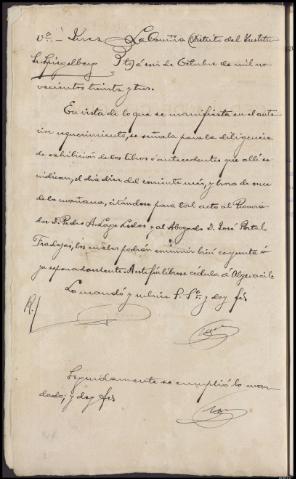 La Coruña Distrito del Instituto
seis de Octubre de mil no-
vecientos treinta y tres.
En vista de lo que se manifiesta en el ante-
rior requerimiento, se señala para la diligencia
de exhibición de los libros o antecedentes que allí se
indican, el día diez del corriente mes, y hora de once
de la mañana, citándose para tal acto al Procura-
dor D. Pedro A. Lage y al Abogado D. José Portal
Fradejas, los cuales podrán
separadamente. líbrese cédula al Alguacil
Lo mandó y rubrica S. Sª; y doy fe
Seguidamente se cumplió lo man-
dado; y doy fe